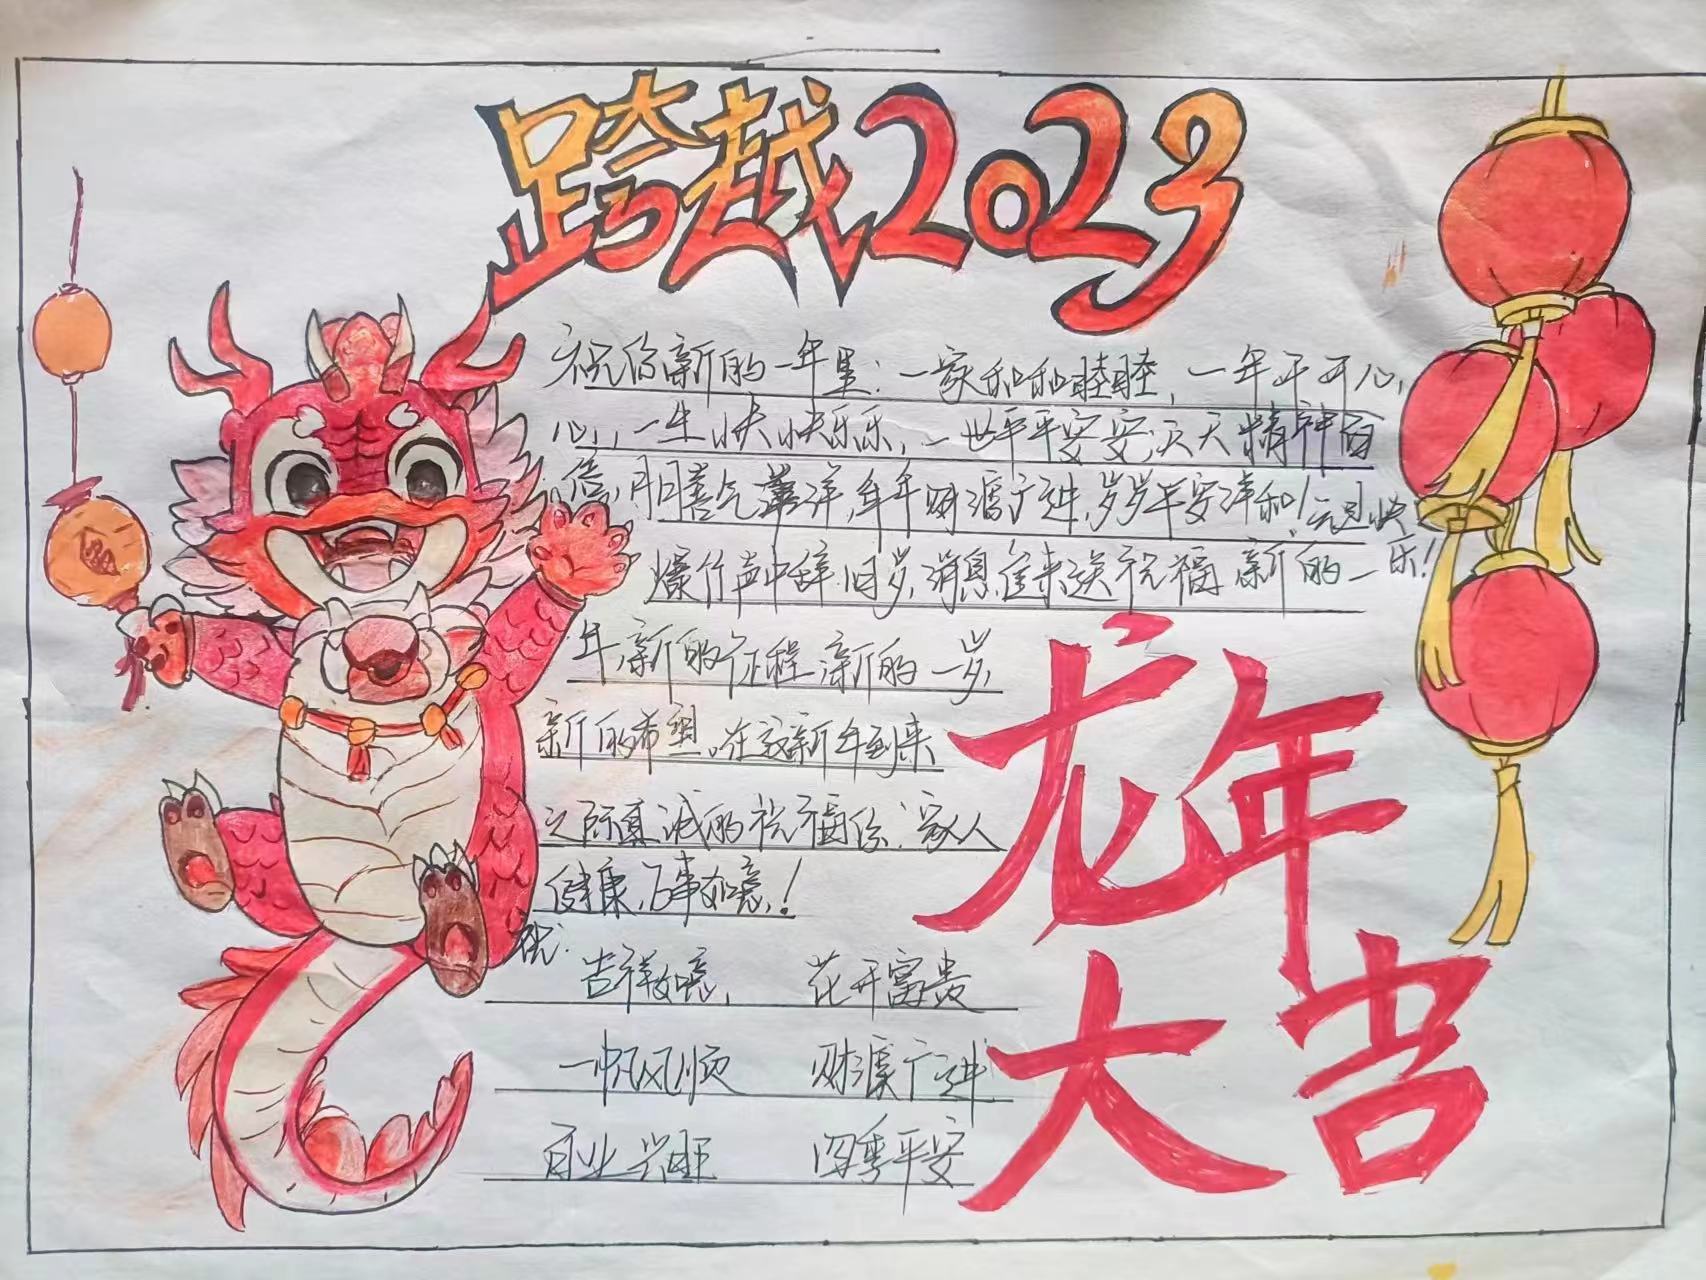 跨越2023
祝你新的一年里:一家和和睦睦,一年开开心
心,一生快快乐乐,一世平平安安,天天精神百
倍,月月喜气洋洋,年年财源广进,岁岁平安祥和!元旦快
乐!
爆竹声中辞旧岁,消息传来送祝福,新的一
年,新的征程,新的一岁,
新的希望。在这新年到来
之际真诚的祝福你:家人
健康,万事如意!
祝:
吉祥如意, 花开富贵
一帆风顺 财源广进
百业兴旺 四季平安
龙年
大吉